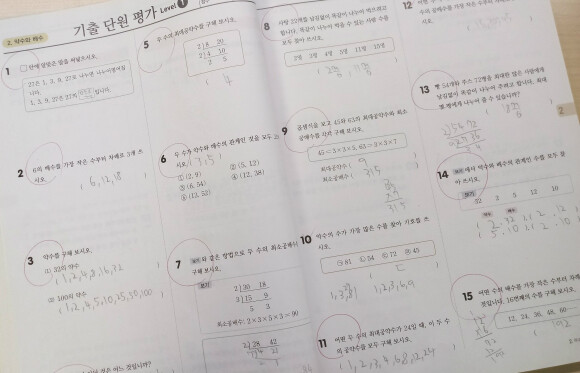 2. 약수와 배수
기출 단원 평가 Level 1
1 □ 안에 알맞은 말을 써넣으시오.
27은 1, 3, 9, 27로 나누면 나누어떨어집니다.
1, 3, 9, 27은 27의
2 6의 배수를 가장 작은 수부터 차례로 3개 쓰시오.
( 6, 12, 18 )
3 약수를 구해 보시오.
(1) 32의 약수
( 1, 2, 4, 8, 16, 32 )
(2) 100의 약수
( 1, 2, 4, 5, 10, 25, 50, 100 )
5 두 수의 최대공약수를 구해 보시오.
2) 8 20
2) 4 10
2 5
( 4 )
6 두 수가 약수와 배수의 관계인 것을 모두
( 3, 5 )
① (2, 9) ② (5, 12)
③ (6, 54) ④ (12, 38)
⑤ (13, 52)
7 보기 와 같은 방법으로 두 수의 최소공배수를
구해 보시오.
보기
2) 30 18
3) 15 9
5 3
최소공배수: 2×3×5×3=90
2) 28 42
8 사탕 22개를 남김없이 똑같이 나누어 먹으려고
합니다. 똑같이 나누어 먹을 수 있는 사람 수를
모두 찾아 쓰시오.
2명 3명 4명 5명 11명 15명
( 2명, 11명 )
9 곱셈식을 보고 45와 63의 최대공약수와 최소
공배수를 각각 구해 보시오.
45=3×3×5, 63=3×3×7
최대공약수 ( 9 )
최소공배수 ( 315 )
10 약수의 수가 가장 많은 수를 찾아 기호를 쓰
시오.
㉠ 81 ㉡ 54 ㉢ 72 ㉣ 45
( ㄷ )
11 어떤 두 수의 최대공약수가 24일 때, 이 두 수
의 공약수를 모두 구해 보시오.
( 1, 2, 3, 4, 6, 8, 12, 24 )
12
13 빵 54개와 주스 72병을 최대한 많은 사람에게
남김없이 똑같이 나누어 주려고 합니다. 최대
몇 명에게 나누어 줄 수 있습니까?
( 18명 )
14 보기 에서 약수와 배수의 관계인 수를 모두 찾
아 쓰시오.
보기
32 2 5 12 10
약수 배수 약수 배수
15 어떤 수의 배수를 가장 작은 수부터 차례로
쓴 것입니다. 16번째의 수를 구해 보시오.
12, 24, 36, 48, 60……
( 192 )